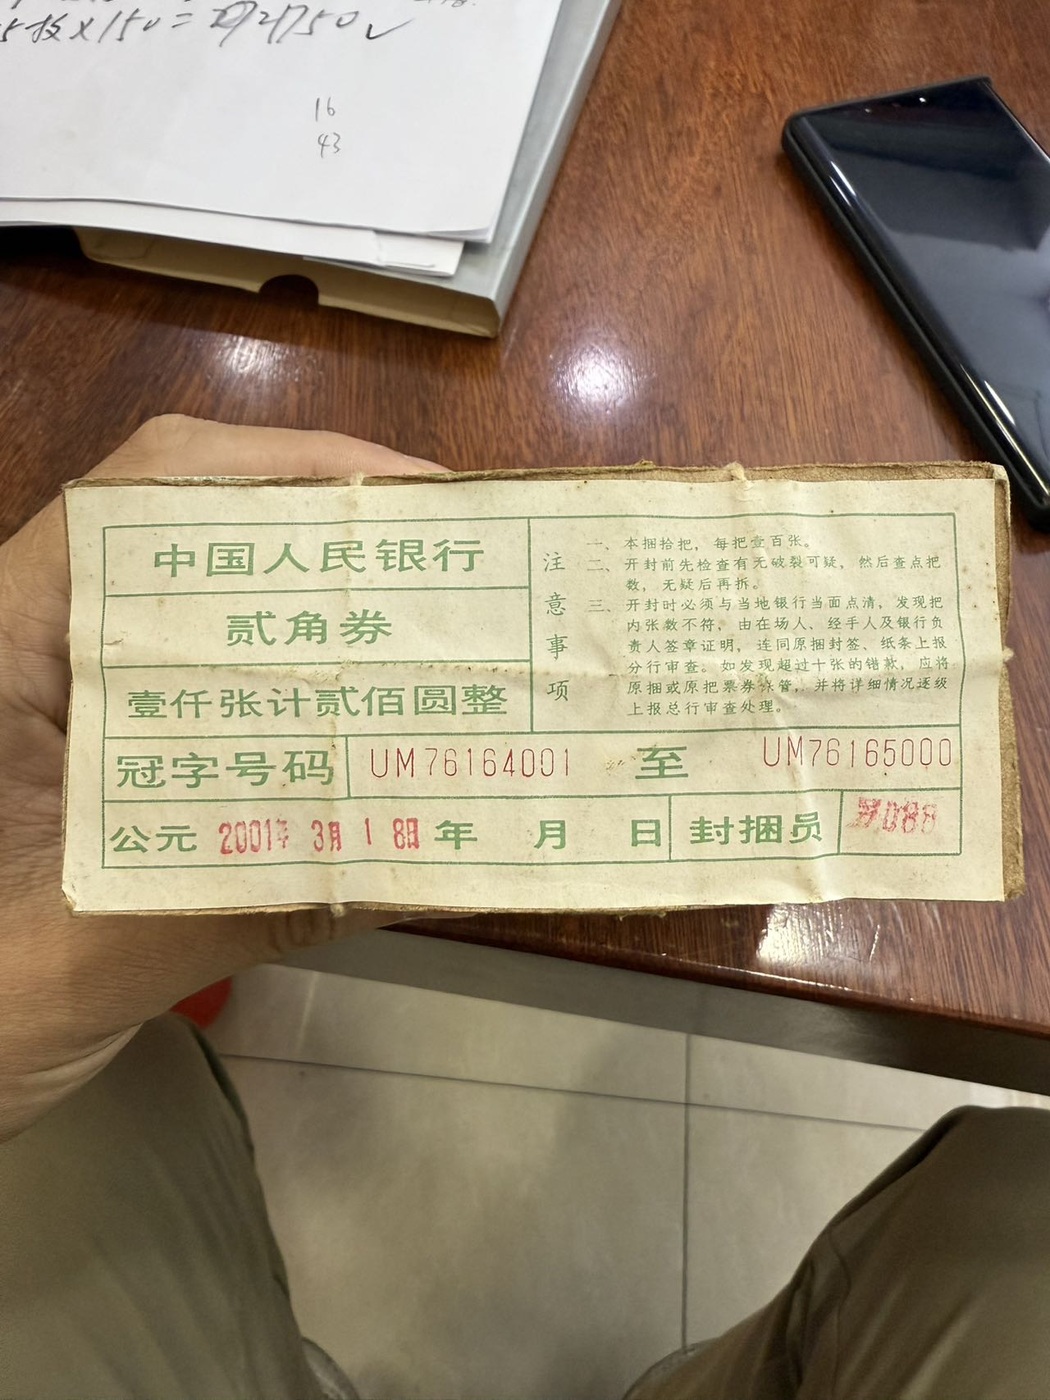 16
43
中国人民银行
贰角券
壹仟张计贰佰圆整
注意事项
一、本捆拾把，每把壹百张。
二、开封前先检查有无破裂可疑，然后查点把
数，无疑后再拆。
三、开封时必须与当地银行当面点清，发现把
内张数不符，由在场人、经手人及银行负
责人签章证明，连同原捆封签、纸条上报
分行审查。如发现超过十张的错款，应将
原捆或原把票券保管，并将详细情况逐级
上报总行审查处理。
冠字号码 UM76164001 至 UM76165000
公元 2001年 3月 18日 年 月 日 封捆员 088